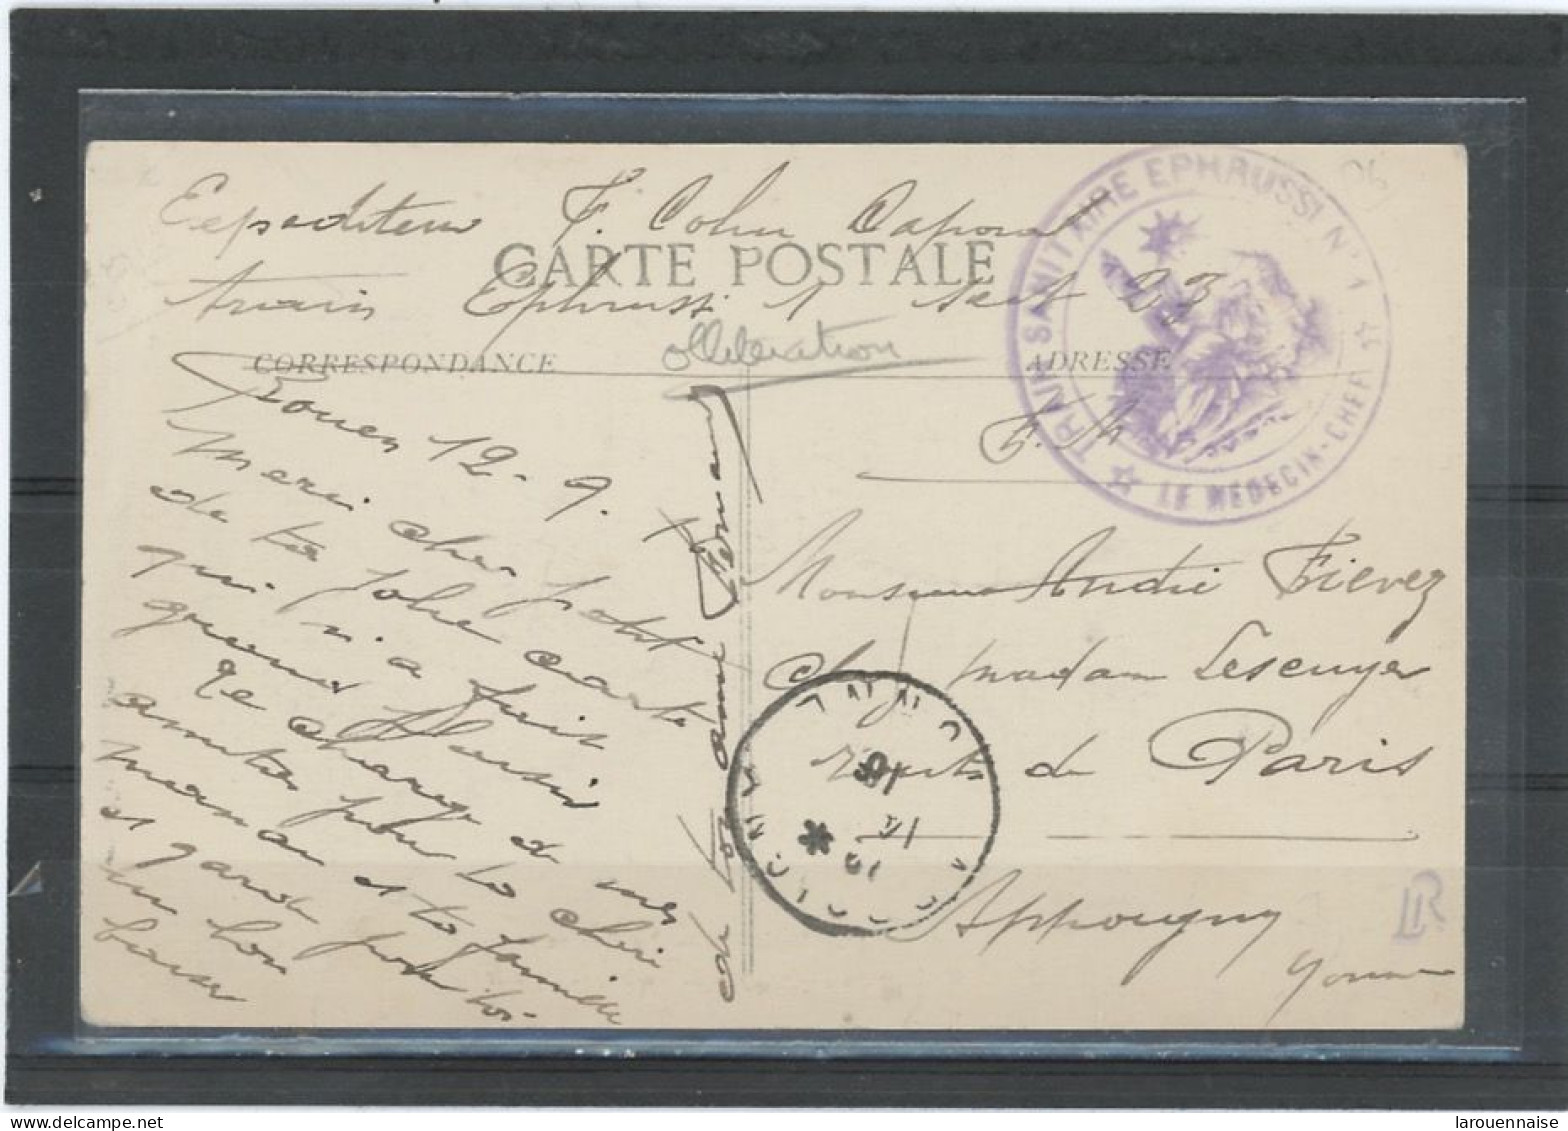 Expediteur F. Cohn Caporal
CARTE POSTALE
train Ephrussi 1 sect 23
oblitération
CORRESPONDANCE
ADRESSE
TRAIN SANITAIRE EPHRUSSI N° 1
LE MEDECIN-CHEF
F. M.
Rouen 12-9.
Merci cher petit
de ta jolie carte
qui m'a fait
grand plaisir
Je charge de mes
amitiés pour ta chère
maman et ta famille
et garde pour toi
un bon
baiser
de ton ami Fernand
Monsieur André Fievez
chez madam Lescuyer
route de Paris
Appoigny
Yonne
LR
larouennaise